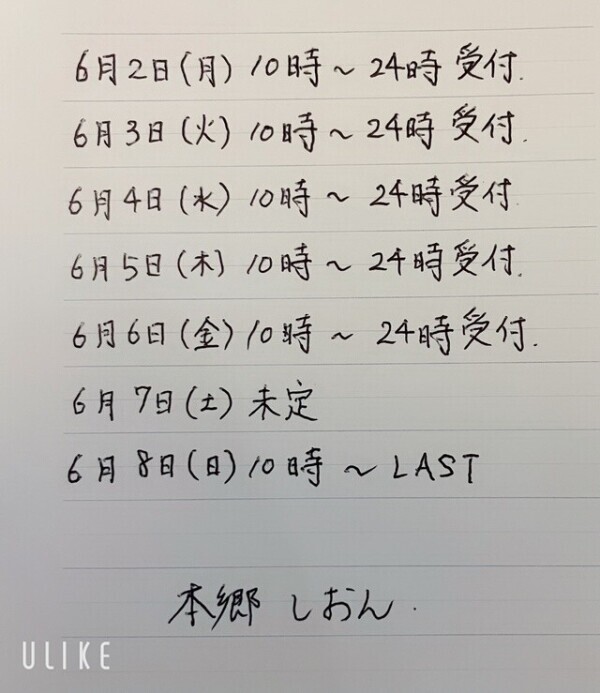 6月2日(月) 10時～24時 受付.
6月3日(火) 10時～ 24時 受付.
6月4日(水) 10時～ 24時受付.
6月5日(木) 10時～24時受付.
6月6日(金) 10時～ 24時受付.
6月7日(土) 未定
6月8日(日) 10時～LAST
本郷 しおん.
ULIKE